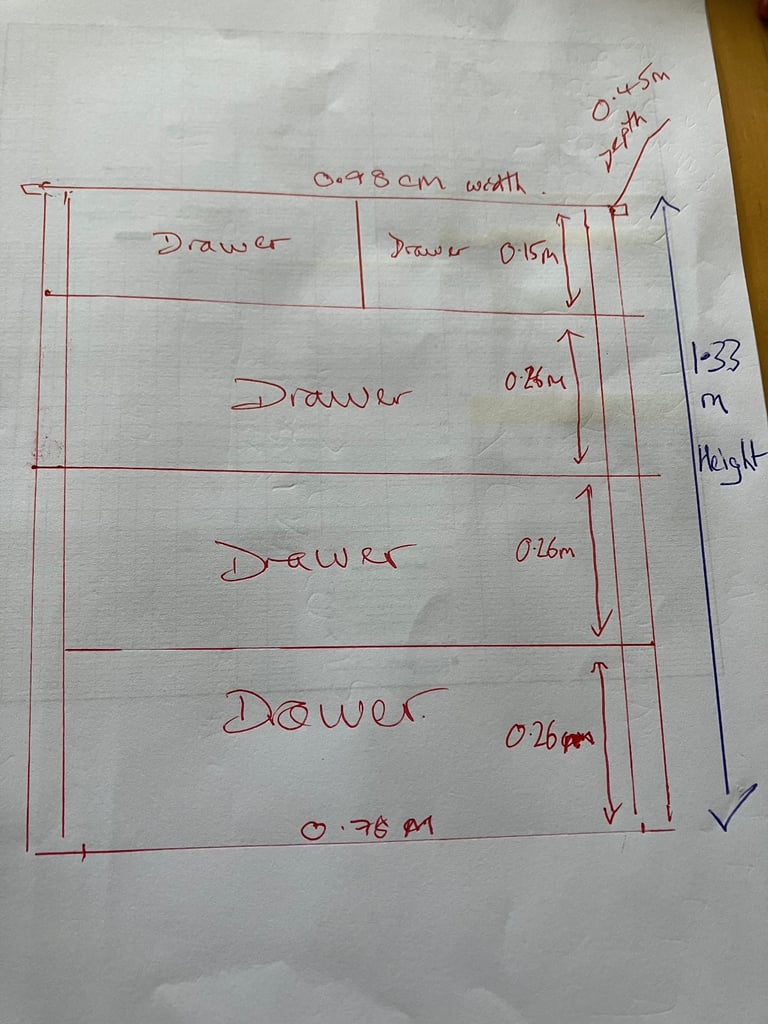 0.45m
Depth
0.98 cm width.
Drawer
Drawer
0.15m
Drawer
0.26m
1.33
m
Height
Drawer
0.26m
Dawer.
0.26m
0.76 M